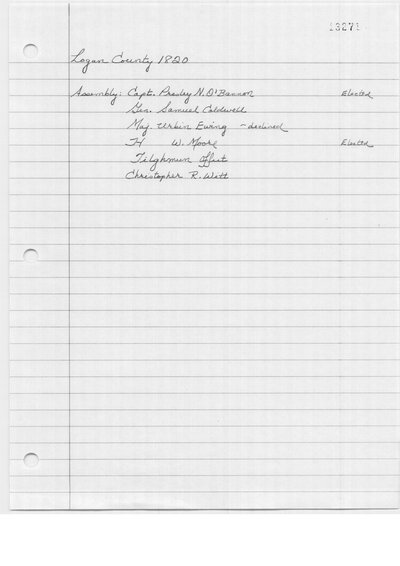 13271
Logan County 1820
Assembly: Capt. Presley N. O'Bannon Elected
Gen. Samuel Caldwell
Maj. Urbin Ewing - declined
W. Moore Elected
Tilghmun Offut
Christopher R. Watt